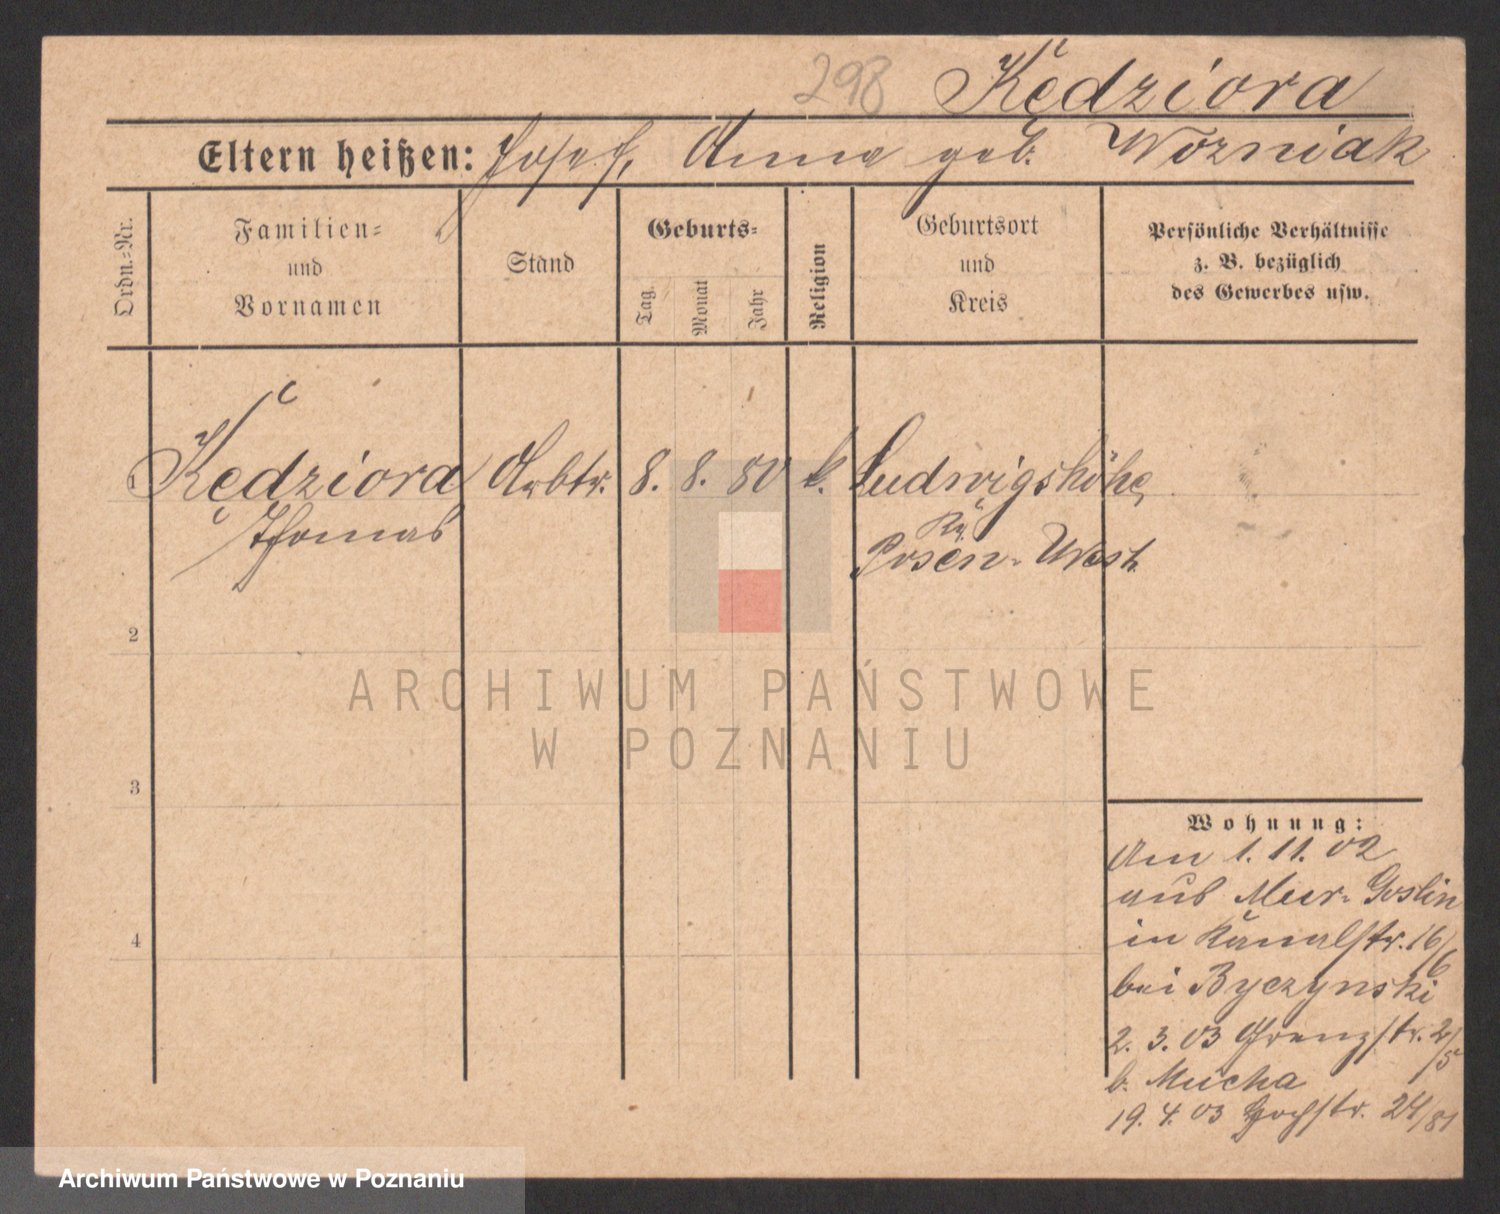 298 Kędziora
Eltern heißen: Josef, Anna geb. Wozniak
Ordn.-Nr.
Familien-
und
Vornamen
Stand
Geburts-
Tag
Monat
Jahr
Religion
Geburtsort
und
Kreis
Persönliche Verhältnisse
z. B. bezüglich
des Gewerbes usw.
1 Kędziora Arbtr. 8. 8. 80 k. Ludwigshöhe,
Thomas
Kr.
Posen-West
2
3
4
Wohnung:
Am 1. 11. 02
aus Mur. Goslin
in Kanalstr. 16/6
bei Byczynski
2. 3. 03 Grenzstr. 2/5
b. Mucha
19. 4. 03 Hochstr. 24/81
ARCHIWUM PAŃSTWOWE
W POZNANIU
Archiwum Państwowe w Poznaniu